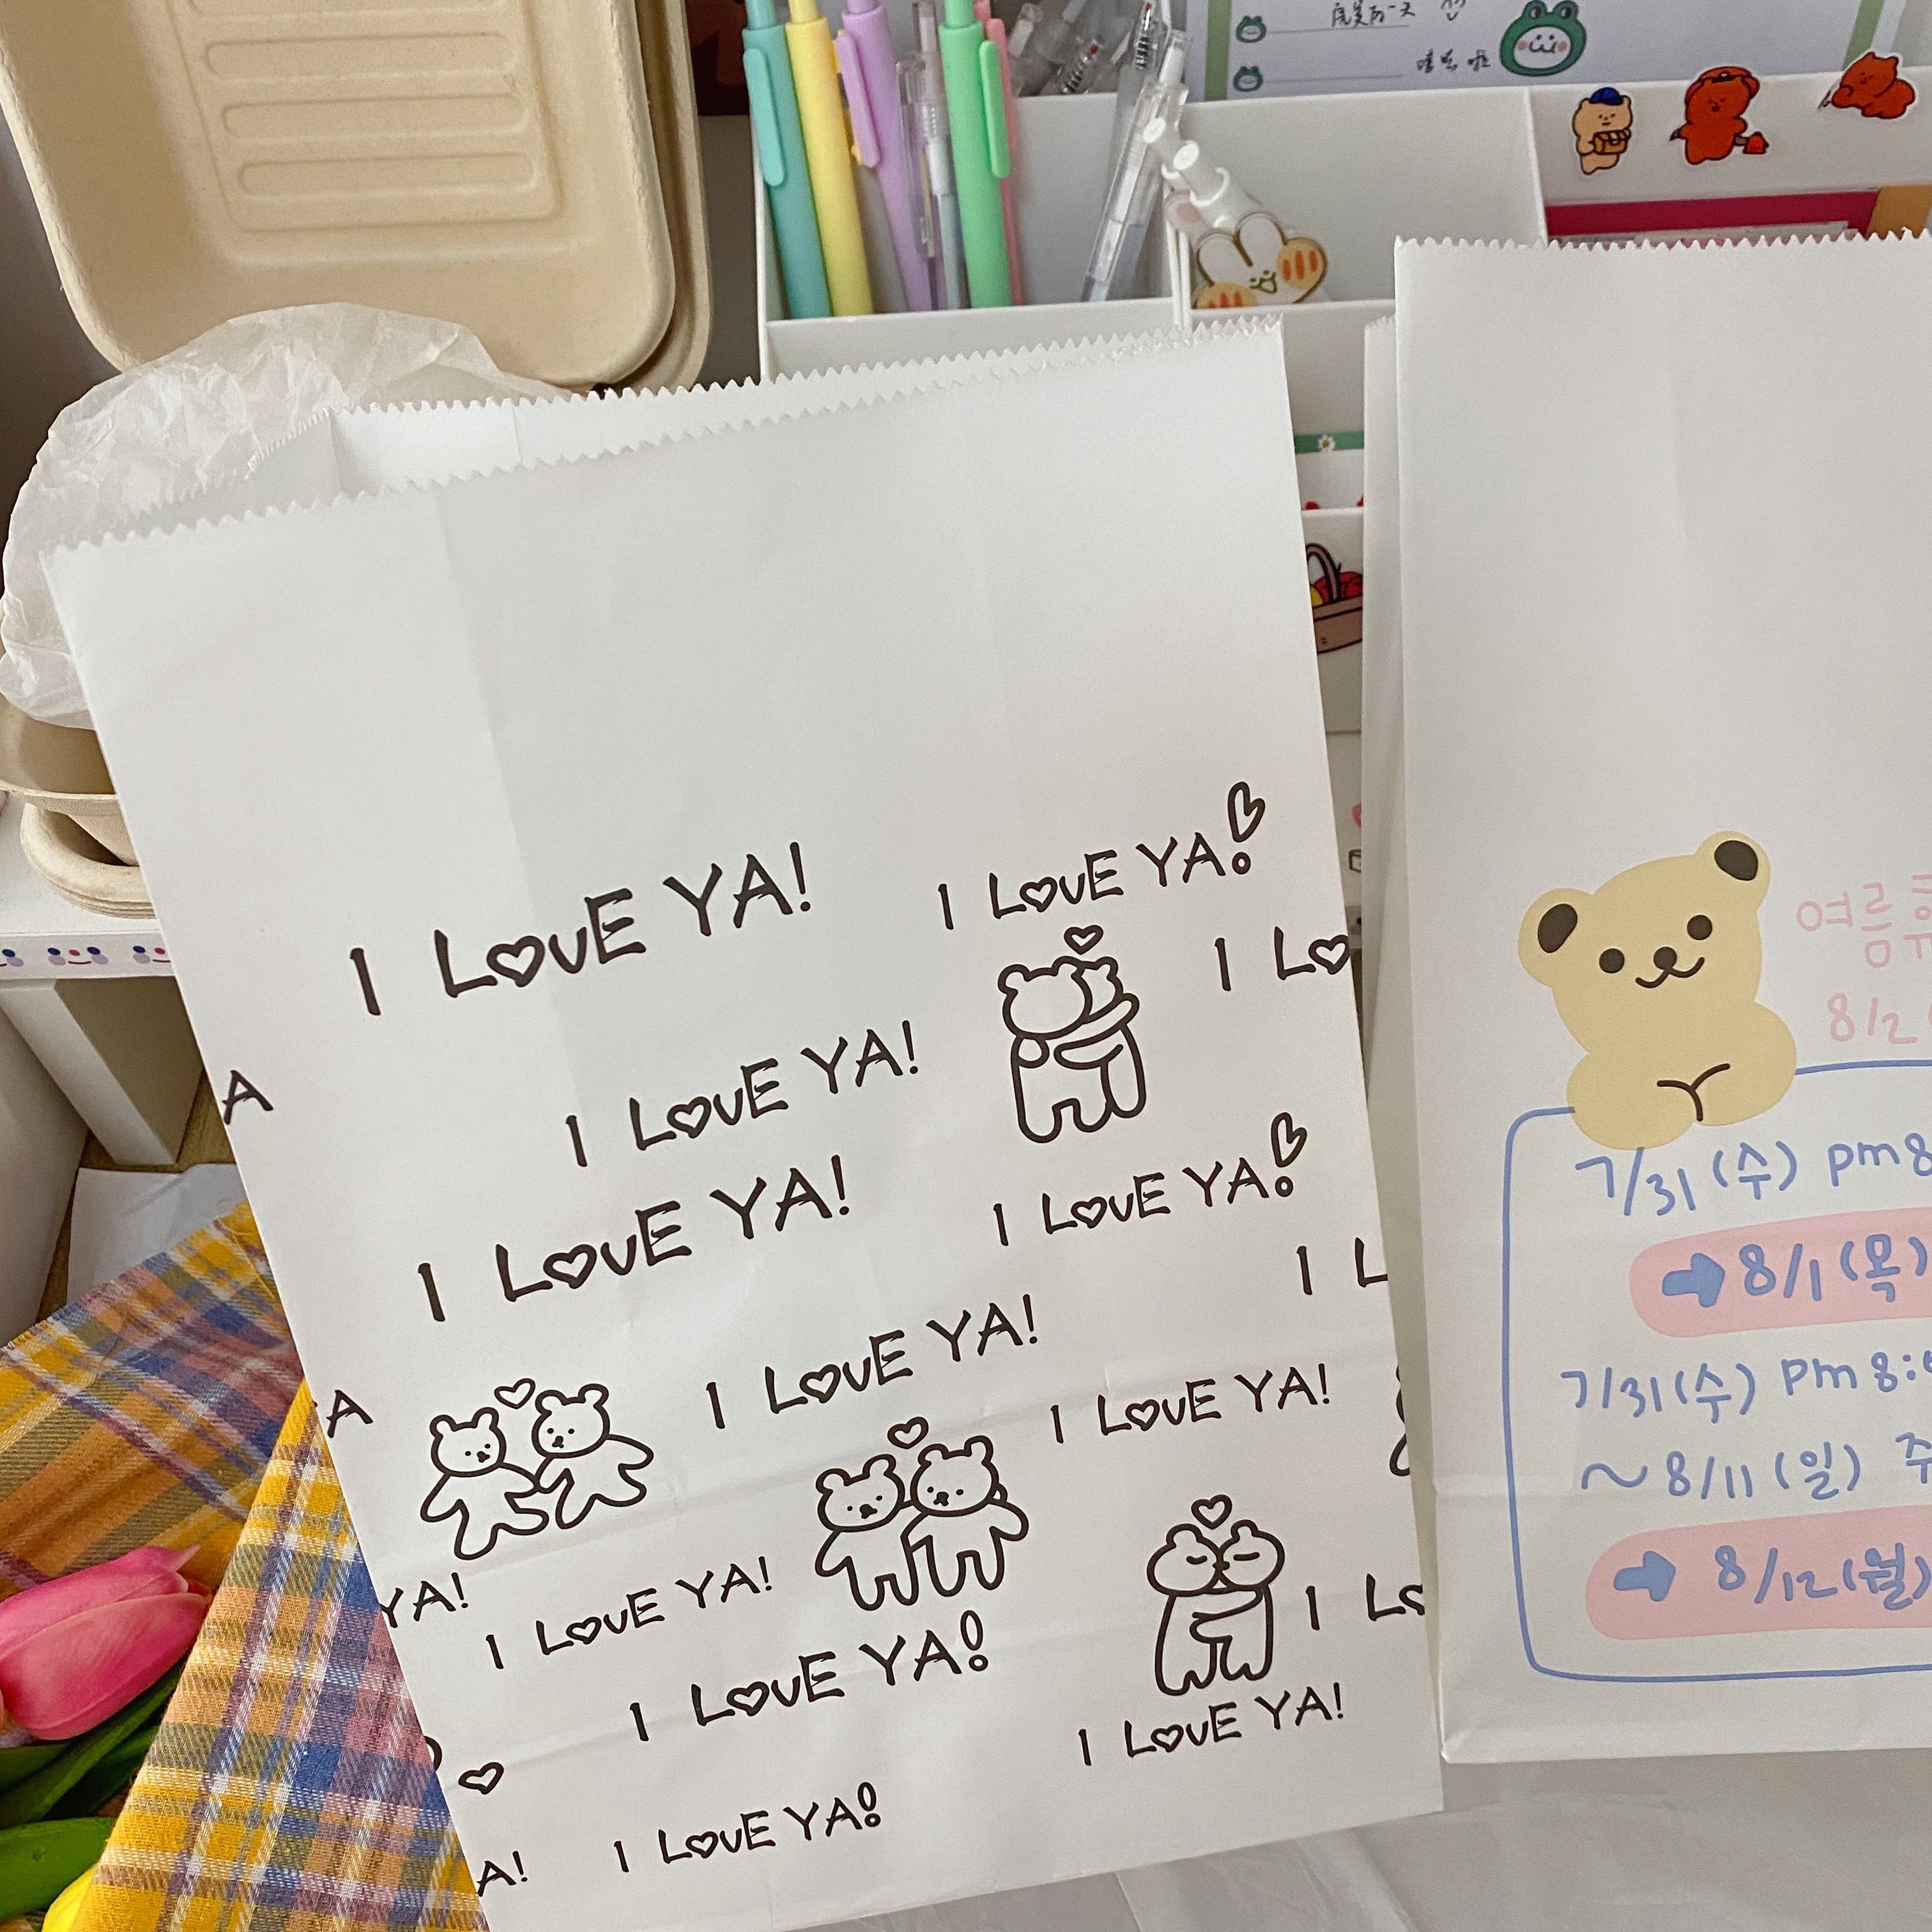 完美的一天
I LOVE YA!
I LOVE YA!
I LO
I LOVE YA!
A
I LOVE YA!
I LOVE YA!
I L
I LOVE YA!
A
I LOVE YA!
YA!
I LOVE YA!
I LO
I LOVE YA!
I LOVE YA!
I LOVE YA!
A!
여름휴
8/2
7/31 (수) pm 8
→ 8/1 (목)
7/31 (수) pm 8:
~ 8/11 (일) 주
→ 8/12 (월)